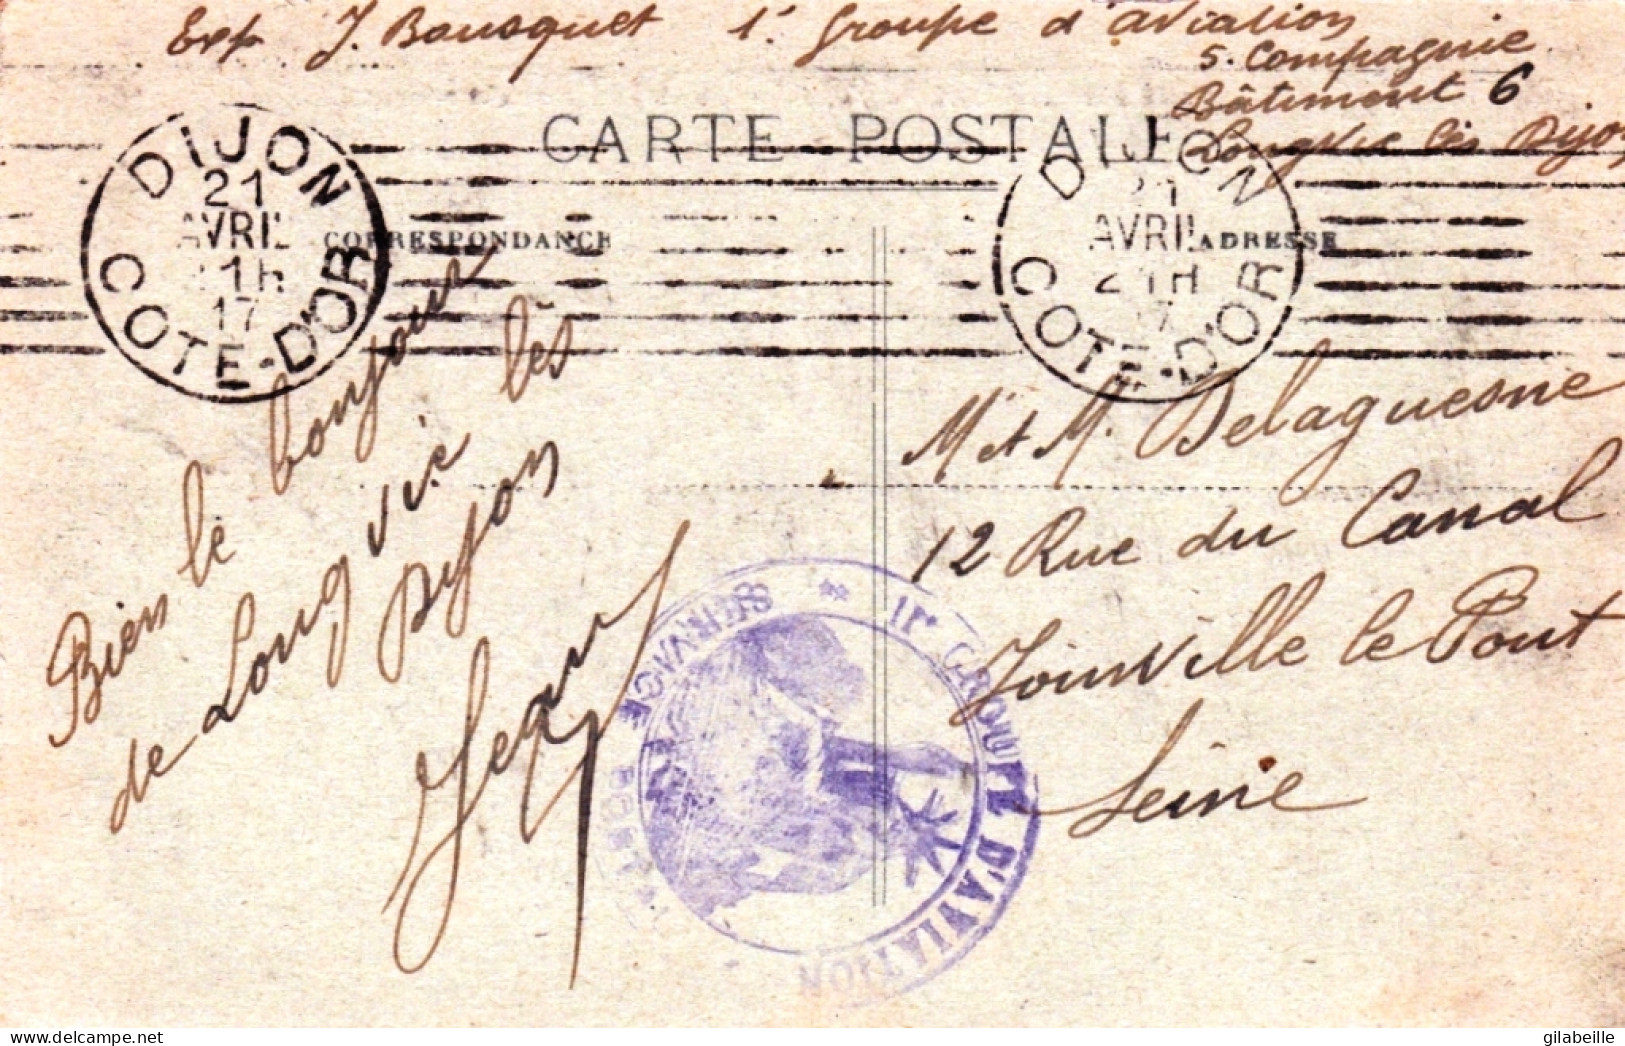 Exp J. Bousquet 1r Groupe d'aviation
5. Compagnie
Bâtiment 6
Longvic lès Dijon
CARTE POSTALE
DIJON
21
AVRIL
21H
17
COTE-D'OR
DIJON
21
AVRIL
21H
17
COTE-D'OR
CORRESPONDANCE
ADRESSE
Bien le bonjour
de Longvic lès
Dijon
Jean
Mr et M. Delaguesne
12 Rue du Canal
Joinville le Pont
Seine
1r GROUPE D'AVIATION
gilabeille